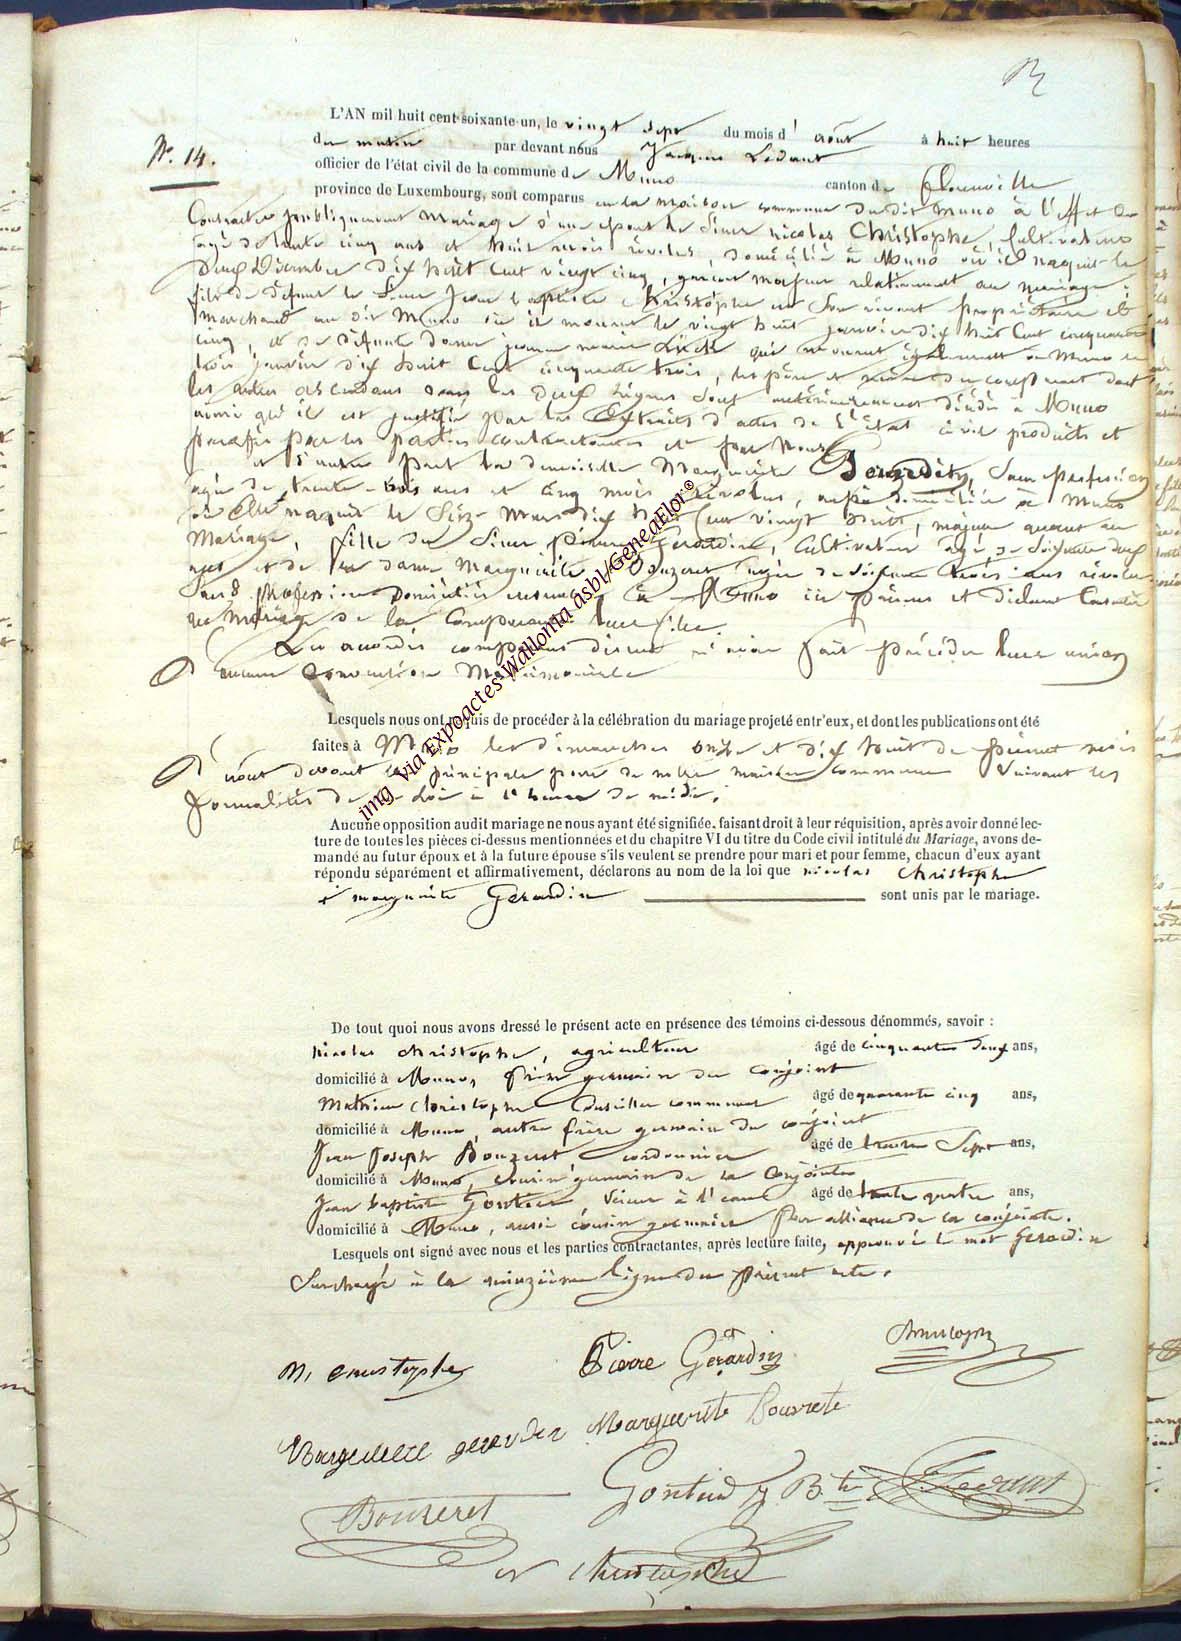 N°. 14.
L'AN mil huit cent soixante-un, le vingt sept du mois d' août à huit heures
du matin par devant nous Jacques Ledant
officier de l'état civil de la commune de Muno canton de Florenville
province de Luxembourg, sont comparus en la maison commune du dit Muno à l'effet de
Contracter publiquement Mariage d'une part le Sieur nicolas Christophe, Cultivateur
agé de trente cinq ans et huit mois révolus, domicilié à Muno où il naquit le
Deux Décembre dix huit Cent vingt cinq, garçon majeur relativement au mariage,
fils de défunt le Sieur Jean baptiste Christophe en Son vivant propriétaire et
Marchand au dit Muno où il mourut le vingt huit janvier dix huit Cent cinquante
cinq, et de défunte Dame jeanne marie qui mourut également à Muno le
trois janvier dix huit Cent cinquante trois, les père et mère du comparant dont
les autres ascendans dans les deux lignes Sont antérieurement décédés à Muno
ainsi qu'il est justifié par les Extraits d'actes de l'Etat civil produits et
paraphés par les parties contractantes et par Nous
et d'autre part la demoiselle Marguerite Gerardin, Sans profession
agée de trente-trois ans et cinq mois révolus, aussi domiciliée à Muno
où Elle naquit le Seize Mars dix huit Cent vingt huit, majeure quant au
Mariage, fille du Sieur Pierre Gerardin, Cultivateur agé de Soixante deux
ans et de la dame Marguerite Bouzeret agée de Soixante trois ans révolus
Sans profession domiciliés ensemble à Muno ici présens et déclarant Consentir
au Mariage de la Comparante leur fille.
Les accordés comparans disent n'avoir fait précéder leur union
D'aucune Convention Matrimoniale
Lesquels nous ont requis de procéder à la célébration du mariage projeté entr'eux, et dont les publications ont été
faites à Muno les dimanches onze et dix huit du présent mois
D'août devant la principale porte de notre maison commune Suivant les
formalités de la loi à l'heure de midi.
Aucune opposition audit mariage ne nous ayant été signifiée, faisant droit à leur réquisition, après avoir donné lec-
ture de toutes les pièces ci-dessus mentionnées et du chapitre VI du titre du Code civil intitulé du Mariage, avons de-
mandé au futur époux et à la future épouse s'ils veulent se prendre pour mari et pour femme, chacun d'eux ayant
répondu séparément et affirmativement, déclarons au nom de la loi que nicolas Christophe
et marguerite Gerardin sont unis par le mariage.
De tout quoi nous avons dressé le présent acte en présence des témoins ci-dessous dénommés, savoir :
Nicolas Christophe, agriculteur âgé de cinquante deux ans,
domicilié à Muno, frère germain du conjoint
Mathieu Christophe Conseiller communal âgé de quarante cinq ans,
domicilié à Muno, autre frère germain du conjoint
Jean Joseph Bouzeret cordonnier âgé de trente Sept ans,
domicilié à Muno, cousin germain de la Conjointe
Jean baptiste Gontier à l'eau âgé de trente quatre ans,
domicilié à Muno, aussi cousin germain par alliance de la conjointe.
Lesquels ont signé avec nous et les parties contractantes, après lecture faite, approuvé le mot Gerardin
Surchargé à la quinzième ligne du présent acte.
N, Christophe Pierre Gérardin Christophe
Marguerite gerardin Marguerite Bouzrete
Bouzeret Gontier J B.te J Ledant
N Christophe
img via Expoactes-Wallonia asbl/GeneaFlor©